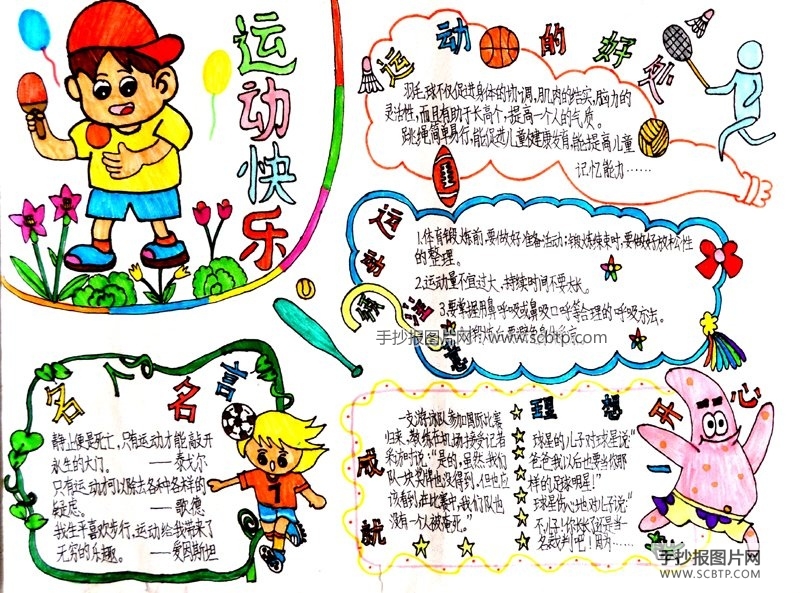 运动快乐
运动的好处
羽毛球不仅促进身体的协调,肌肉的结实,脑力的
灵活性,而且有助于长高个,提高一个人的气质。
跳绳简单易行,能促进儿童健康发育,能提高儿童
记忆能力……
运动须注意
1.体育锻炼前,要做好准备活动;锻炼结束时,要做好放松性
的整理。
2.运动量不宜过大,持续时间不要太长。
3.要掌握用鼻呼吸或鼻吸口呼等合理的呼吸方法。
手抄报图片网 www.scbtp.com
名人名言
静止便是死亡,只有运动才能敲开
永生的大门。 ——泰戈尔
只有运动才可以除去各种各样的
疑虑。 ——歌德
我生平喜欢步行,运动给我带来了
无穷的乐趣。 ——爱因斯坦
1
成就
一支游泳队参加国际比赛
归来,教练在机场接受记者
采访时说:“是的,虽然,我们
队一块奖牌也没得到,但也应
该看到,在比赛中,我们队也
没有一个人被淹死。”
理想
开心一
球星的儿子对球星说:“
爸爸我以后也要当你那
样的足球明星!”
球星伤心地对儿子说:“
不,儿子!你长大还是当一
名裁判吧!因为……
手抄报图片网
WWW.SCBTP.COM